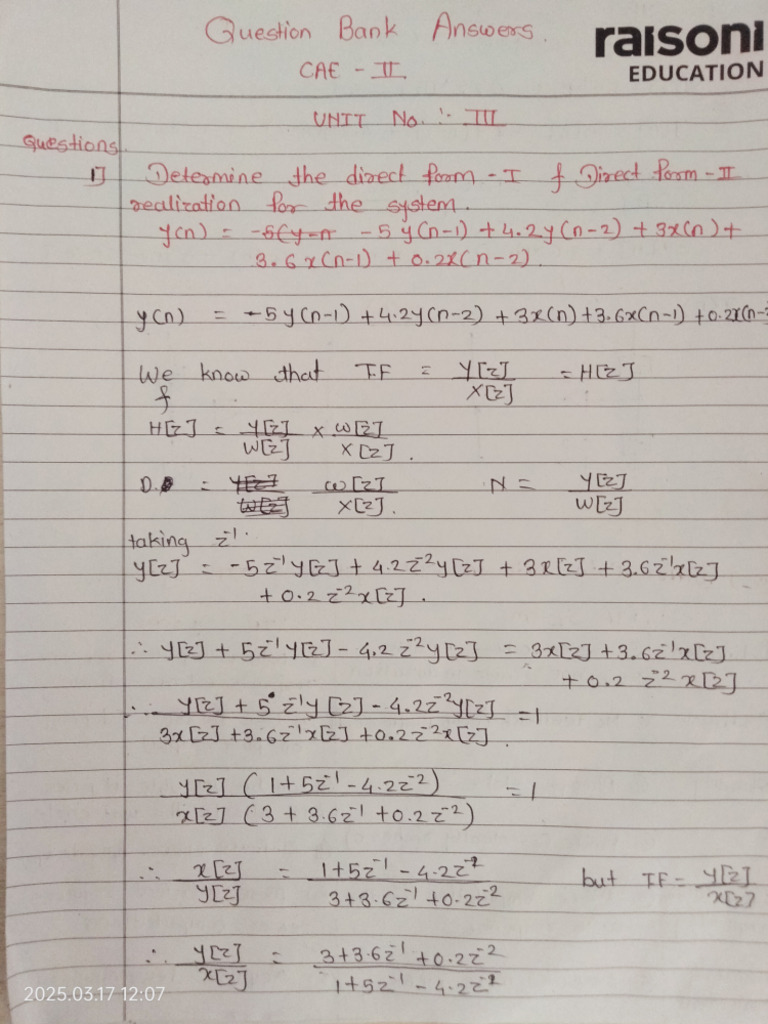 Question Bank Answers.
raisoni
EDUCATION
CAE - II.
UNIT No. :- III
Questions.
1] Determine the direct form - I & Direct form - II
realization for the system.
y(n) = -5 y(n-1) + 4.2y(n-2) + 3x(n) +
3.6 x(n-1) + 0.2x(n-2).
y(n) = -5y(n-1) + 4.2y(n-2) + 3x(n) + 3.6x(n-1) + 0.2x(n-
We know that T.F = Y[z] / X[z] = H[z]
&
H[z] = Y[z] / W[z] × W[z] / X[z].
D. = W[z] / X[z]. N = Y[z] / W[z]
taking z⁻¹.
y[z] = -5z⁻¹y[z] + 4.2z⁻²y[z] + 3x[z] + 3.6z⁻¹x[z]
+ 0.2z⁻²x[z].
∴ y[z] + 5z⁻¹y[z] - 4.2 z⁻²y[z] = 3x[z] + 3.6z⁻¹x[z]
+ 0.2 z⁻² x[z]
∴ y[z] + 5 z⁻¹y[z] - 4.2z⁻²y[z] = 1
3x[z] + 3.6z⁻¹x[z] + 0.2z⁻²x[z].
y[z] (1+5z⁻¹ - 4.2z⁻²) = 1
x[z] (3 + 3.6z⁻¹ + 0.2z⁻²)
∴ x[z] / y[z] = 1+5z⁻¹ - 4.2z⁻² / 3+3.6z⁻¹ + 0.2z⁻² but T.F = y[z] / x[z]
∴ y[z] / x[z] = 3+3.6z⁻¹ + 0.2z⁻² / 1+5z⁻¹ - 4.2z⁻²
2025.03.17 12:07